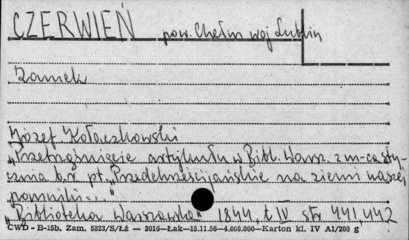 CZERWIEŃ pow. Chełm woj Lublin
Zamek
Józef Kołaczkowski
"Przetrząśnięcie artykułu w Bibl. Warsz. zm-casty-
sznia br. pt. "Przedchrześcijańskie na ziemi naszej
pomniki..."
"Biblioteka Warszawska" 1844, t IV str 441, 442
CWD - B-15b. Zam. 5823/S/Łż — 3016—Łak—15.11.56—4.000.000—Karton kl. IV A1/200 g